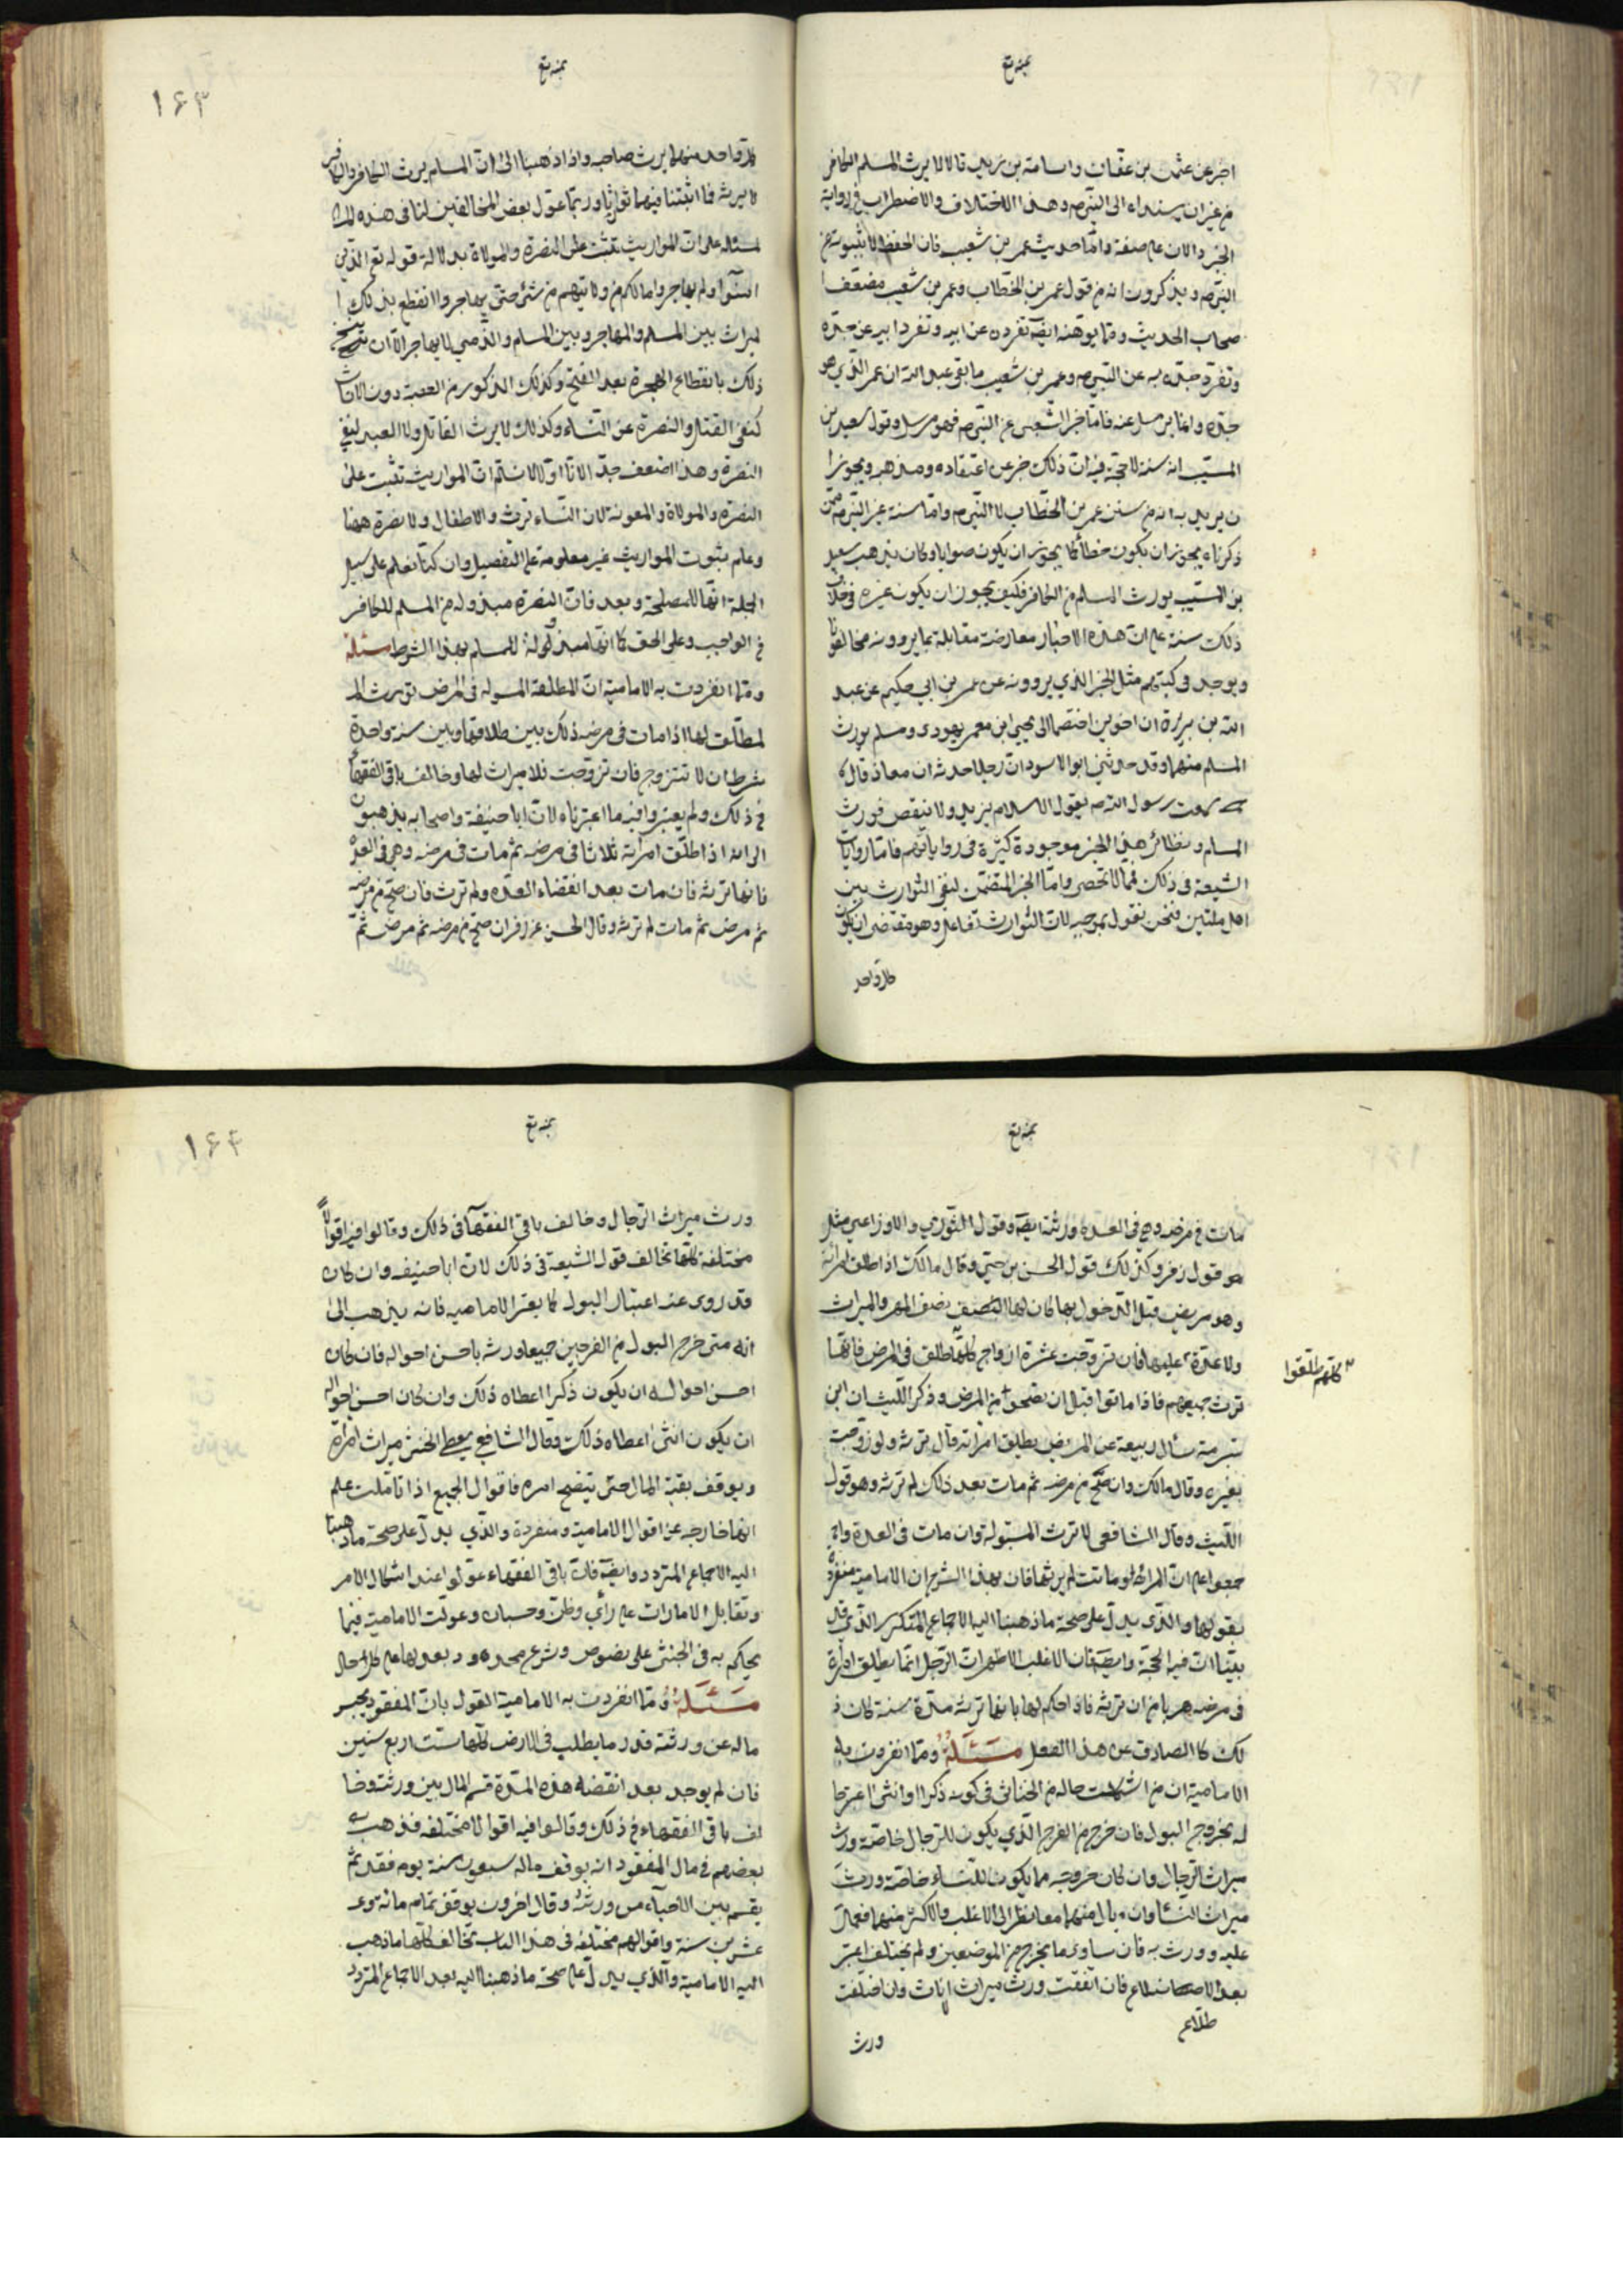 بمنه تع
اخبر عن عثمن بن عفان واسامة بن زيد قالا لا يرث المسلم الكافر
من غير ان يسنداه الى النبي ص وهذا الاختلاف والاضطراب فى رواية
الخبر دالان على ضعفه واما حديث عمر بن شعيب فان الحفظ لا يثبتونه عن
النبي ص ويذكرون انه من قول عمر بن الخطاب وعمر بن شعيب مضعف ا
صحاب الحديث ومما يوهنه ايضا تفرده عن ابيه وتفرد ابيه عن جده
وتفرد جده به عن النبي ص وعمر بن شعيب ما لقى عبد الله ان عمر الذي هو
جده وانما يرسل عنه فاما خبر الشعبى عن النبي ص فهو مرسل وقول سعيد بن
المسيب انه سنة لا حجة فيه ان ذلك خبر عن اعتقاده ومذهبه ويجوز ا
ن يريد به انه من سنن عمر بن الخطاب لا النبي ص واما سنة غير النبي ص ممن
ذكرناه يجوز ان يكون خطأ كما يجوز ان يكون صوابا وكان يذهب سعيد
بن المسيب يورث المسلم من الكافر فكيف يجوز ان يكون عنده فى خلاف
ذلك سنة على ان هذه الاخبار معارضة مقابلة بما يروونه مخالفونا
ويوجد فى كتبهم مثل الخبر الذي يروونه عن عمر بن ابي حكيم عن عبد
الله بن بريرة ان اخوين اختصما الى يحيى ابن معمر يهودى ومسلم فورث
المسلم منهما وقد حدثنى ابو الاسود ان رجلا حدثه ان معاذ قال
سمعت رسول الله ص يقول الاسلام يزيد ولا ينقص فورث
المسلم ونظائر هذا الخبر موجودة كثيرة فى رواياتهم فاما روايات
الشيعة فى ذلك فمما لا تحصى واما الخبر المتضمن لنفى التوارث بين
اهل ملتين فنحن نقول بموجبه لان التوارث تفاعل وهو مقتضى ان يكون
كل واحد
بمنه تع
١٦٣
كل واحد منهما يرث صاحبه واذا ذهبنا الى ان المسلم يرث الكافر والكافر
لا يرثه فما اثبتنا فيهما توارثا وربما عول بعض المخالفين لنا فى هذه الم
لمسئلة على ان المواريث تثبت على النصرة والموالاة بدلالة قوله تع الذين
امنوا ولم يهاجروا مالكم من ولايتهم من شئ حتى يهاجروا انقطع بذلك ا
لميراث بين المسلم والمهاجر وبين المسلم والذمي لا يهاجر الا ان نسخ
ذلك بانقطاع الهجرة بعد الفتح وكذلك الذكور من العصبة دون الاناث
كنفى القتل والنصرة عن النساء وكذلك لا يرث القاتل ولا العبد لنفى
النصرة وهذا اضعف جدا لانا اولا لا نسلم ان المواريث تثبت على
النصرة والموالاة والمعونة لان النساء ترث والاطفال ولا نصرة ههنا
وعلم بثبوت المواريث غير معلومة على التفصيل وان كنا نعلم على سبيل
الجملة انها للمصلحة وبعد فان النصرة مبذولة من المسلم للكافر
فى الواجب وعلى الحق كما انها مبذولة للمسلم بهذا الشرط مسئلة
ومما انفردت به الامامية ان المطلقة المبتوته فى المرض تورث ال
لمطلق لها اذا مات فى مرضه ذلك بين طلاقها وبين سنة واحدة
بشرط ان لا تتزوج فان تزوجت فلا ميراث لها وخالف باقى الفقهاء
فى ذلك ولم يعتبروا فيه ما اعتبرناه لان ابا حنيفة واصحابه يذهبون
الى انه اذا طلق امرأته ثلاثا فى مرضه ثم مات فى مرضه وهى فى العدة
فانها ترثه فان مات بعد انقضاء العدة ولم ترث فان صح من مرضه
ثم مرض ثم مات لم ترثه وقال الحسن عن زفر ان صح من مرضه ثم مرض ثم
بمنه تع
مات فى مرضه وهى فى العدة ورثته ايضا وقول الثوري والاوزاعي مثل
هو قول زفر وكذلك قول الحسن بن حي وقال مالك اذا طلق امرأته
وهو مريض قبل الدخول بها كان لها النصف نصف المهر والميراث
ولا عدة عليها فان تزوجت عشرة ازواج كلهم طلق فى المرض فانها
ترث جميعهم فاذا ماتوا قبل ان يصحوا من المرض وذكر الليث ان ابن
كلهم طلقوا
شبرمة سأل ربيعة عن المريض يطلق امرأته قال ترثه ولو زوجت
بغيره وقال مالك وان صح من مرضه ثم مات بعد ذلك لم ترثه وهو قول
الليث وقال الشافعى لا ترث المبتوتة وان مات فى العدة وا
جمعوا على ان المرأة لو ماتت لم يرثها فان بهذا الشرح ان الامامية منفردة
بقولها والذى يدل على صحة ما ذهبنا اليه الاجماع المتكرر الذي قد
بينا ان فيه الحجة وايضا فان الاغلب الاظهر ان الرجل انما يطلق امرأة
فى مرضه هربا من ان ترثه فاذا حكم لها بانها ترثه مدة سنة كان ذ
لك كالصارف عن هذا الفعل مسئلة ومما انفردت به
الامامية ان من اشكلت حاله من الخناثى فى كونه ذكرا او انثى اعتبرحا
له بخروج البول فان خرج من الفرج الذي يكون للرجال خاصة ورث
ميراث الرجال وان كان خروجه مما يكون للنساء خاصة ورث
ميراث النساء وان بال منهما معا نظر الى الاغلب والاكثر منهما فعمل
عليه وورث به فان تساوى ما يخرج من الموضعين ولم يختلف اعتبر
بعد الاضلاع فان اتفقت ورث ميراث الاناث وان اختلفت
طلاع
ورث
بمنه تع
١٦٤
ورث ميراث الرجال وخالف باقى الفقهاء فى ذلك وقالوا فيه اقوالا
مختلفة كلها تخالف قول الشيعة فى ذلك لان ابا حنيفه وان كان
قد روى عنه اعتبار البول كما يعتبر الاماميه فانه يذهب الى
انه متى خرج البول من الفرجين جميعا ورثه باحسن احواله فان كان
احسن احواله ان يكون ذكرا اعطاه ذلك وان كان احسن احواله
ان يكون انثى اعطاه ذلك وقال الشافعي يعطى الخنثى ميراث امرأة
ويوقف بقية المال حتى يتضح امره فاقوال الجميع اذا تاملت علم
انها خارجه عن اقوال الامامية ومنفردة والذي يدل على صحة ما ذهبنا
اليه الاجماع المتردد وايضا فان باقى الفقهاء عولوا عند اشكال الامر
وتقابل الامارات على رأي وظن وحسبان وعولت الامامية فيما
يحكم به فى الخنثى على نصوص وشرع محدود بعدلها على كل حال
مسئلة ومما انفردت به الامامية القول بان المفقود يحبس
ماله عن ورثته قدر ما يطلب فى الارض كلها ست اربع سنين
فان لم يوجد بعد انقضاء هذه المدة قسم المال بين ورثته وخا
لف باقى الفقهاء فى ذلك وقالوا فيه اقوالا مختلفه فذهب
بعضهم فى مال المفقود انه يوقف ماله سبعون سنة يوم فقد ثم
يقسم بين الاحياء من ورثته وقال اخرون يوقف تمام مائة و
عشرين سنة واقوالهم مختلفه فى هذا الباب تخالف كلها ما ذهب
اليه الامامية والذي يدل على صحة ما ذهبنا اليه بعد الاجماع المتردد